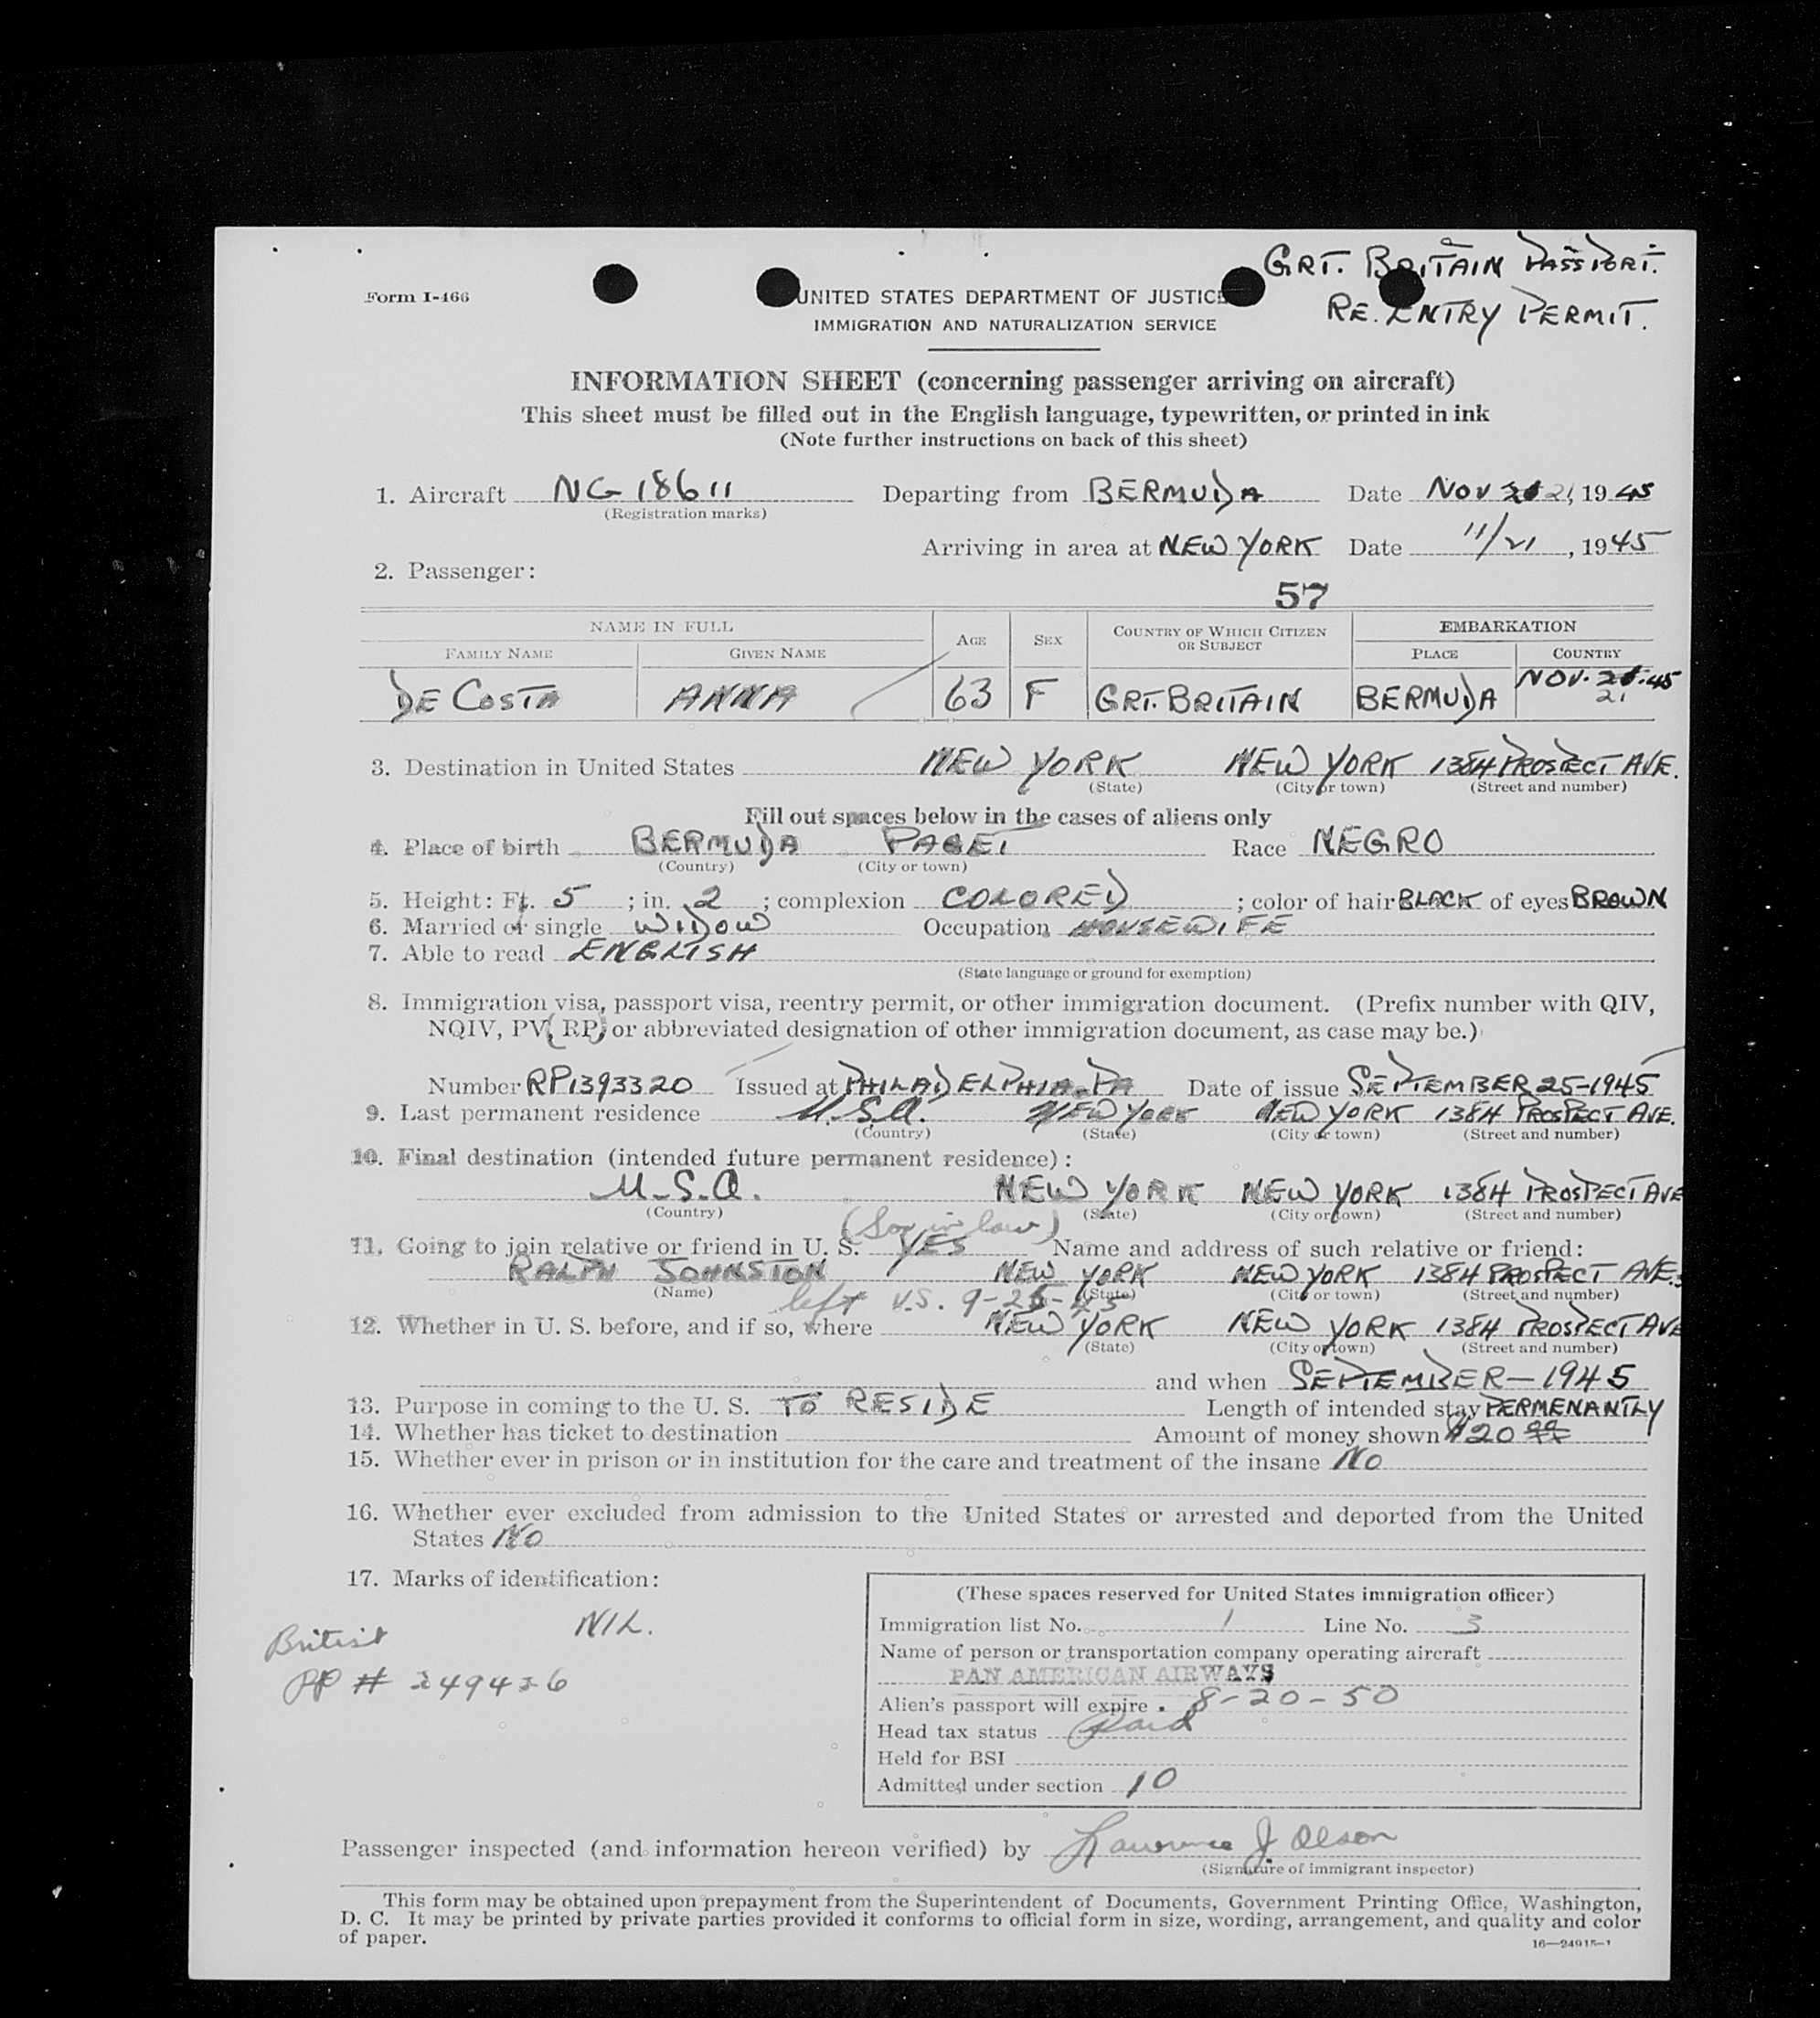 GRT. BRITAIN PASSPORT.
Form I-466
UNITED STATES DEPARTMENT OF JUSTICE
RE. ENTRY PERMIT.
IMMIGRATION AND NATURALIZATION SERVICE
INFORMATION SHEET (concerning passenger arriving on aircraft)
This sheet must be filled out in the English language, typewritten, or printed in ink
(Note further instructions on back of this sheet)
1. Aircraft NC 18611 Departing from BERMUDA Date NOV 21, 1945
(Registration marks)
Arriving in area at NEW YORK Date 11/21, 1945
2. Passenger:
57
NAME IN FULL AGE SEX COUNTRY OF WHICH CITIZEN OR SUBJECT EMBARKATION
FAMILY NAME GIVEN NAME PLACE COUNTRY
DE COSTA ANNA 63 F GRT. BRITAIN BERMUDA NOV. 21 45
3. Destination in United States NEW YORK NEW YORK 1384 PROSPECT AVE.
(State) (City or town) (Street and number)
Fill out spaces below in the cases of aliens only
4. Place of birth BERMUDA PAGET Race NEGRO
(Country) (City or town)
5. Height: Ft. 5; in. 2; complexion COLORED; color of hair BLACK of eyes BROWN
6. Married or single WIDOW Occupation HOUSEWIFE
7. Able to read ENGLISH
(State language or ground for exemption)
8. Immigration visa, passport visa, reentry permit, or other immigration document. (Prefix number with QIV,
NQIV, PV, RP, or abbreviated designation of other immigration document, as case may be.)
Number RP1393320 Issued at PHILADELPHIA. PA Date of issue SEPTEMBER 25-1945
9. Last permanent residence U.S.A. NEW YORK NEW YORK 1384 PROSPECT AVE.
(Country) (State) (City or town) (Street and number)
10. Final destination (intended future permanent residence):
U.S.A. NEW YORK NEW YORK 1384 PROSPECT AVE
(Country) (State) (City or town) (Street and number)
(Son in law)
11. Going to join relative or friend in U. S. YES Name and address of such relative or friend:
RALPH JOHNSTON NEW YORK NEW YORK 1384 PROSPECT AVE.
(Name) (State) (City or town) (Street and number)
left U.S. 9-26-45
12. Whether in U. S. before, and if so, where NEW YORK NEW YORK 1384 PROSPECT AVE
(State) (City or town) (Street and number)
and when SEPTEMBER-1945
13. Purpose in coming to the U. S. TO RESIDE Length of intended stay PERMENANTLY
14. Whether has ticket to destination Amount of money shown $20 00
15. Whether ever in prison or in institution for the care and treatment of the insane NO
16. Whether ever excluded from admission to the United States or arrested and deported from the United
States NO
17. Marks of identification:
NIL.
British
PP #
(These spaces reserved for United States immigration officer)
Immigration list No. 1 Line No. 3
Name of person or transportation company operating aircraft
PAN AMERICAN AIRWAYS
Alien's passport will expire 8-20-50
Head tax status Paid
Held for BSI
Admitted under section 10
Passenger inspected (and information hereon verified) by Lawrence J. Olson
(Signature of immigrant inspector)
This form may be obtained upon prepayment from the Superintendent of Documents, Government Printing Office, Washington,
D. C. It may be printed by private parties provided it conforms to official form in size, wording, arrangement, and quality and color
of paper.
16—24915-1